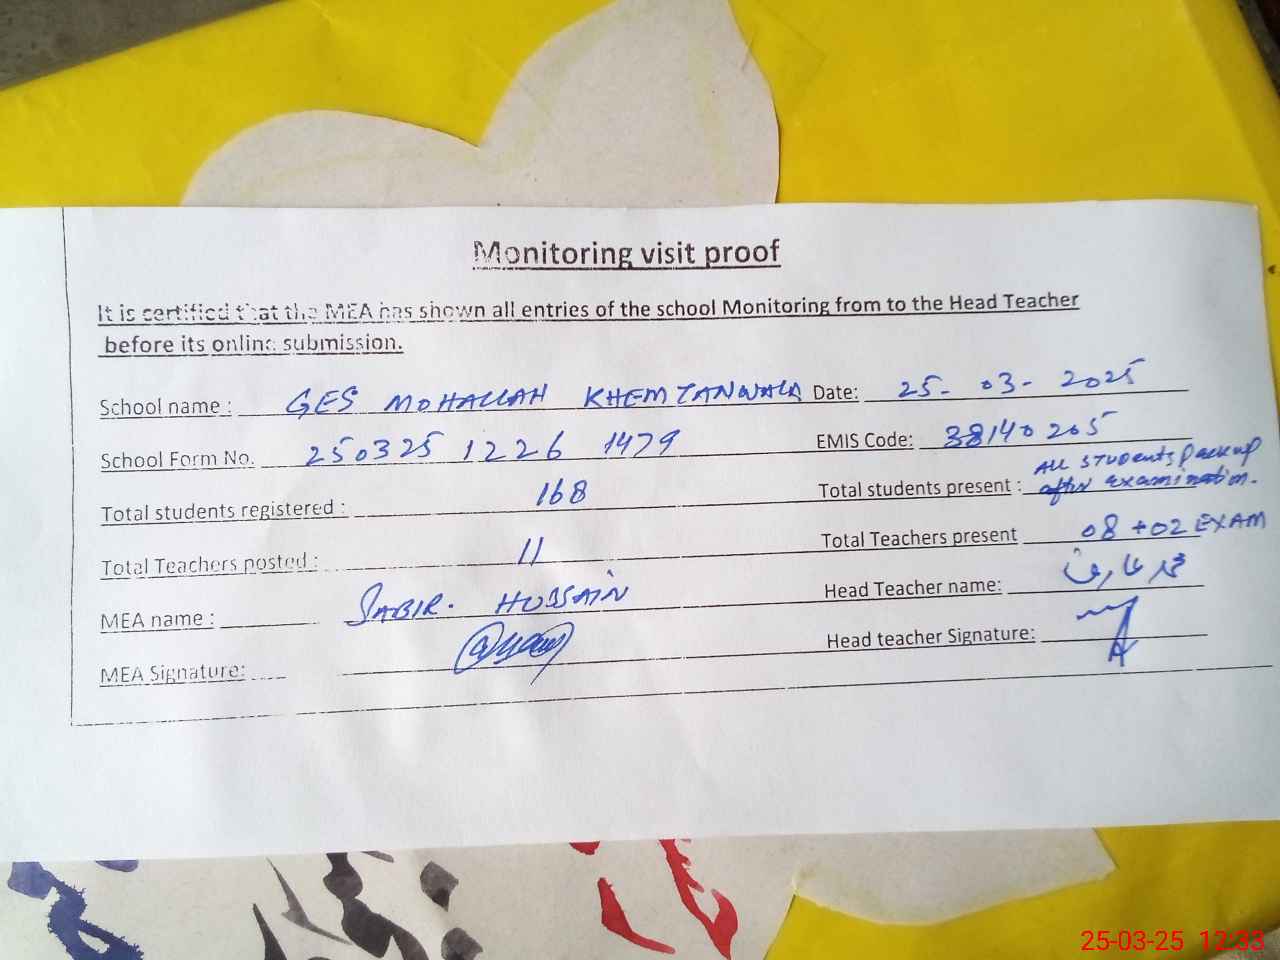 Monitoring visit proof
It is certified that the MEA has shown all entries of the school Monitoring from to the Head Teacher
before its online submission.
School name : GES MOHALLAH KHEMTANWALA Date: 25-03-2025
School Form No. 250325 1226 1479 EMIS Code: 38140205
Total students registered : 168 Total students present : ALL STUDents Pack up
after examination.
Total Teachers posted : 11 Total Teachers present 08 +02 EXAM
MEA name : SABIR. HUSSAIN Head Teacher name: محمد عارف
MEA Signature: Head teacher Signature:
25-03-25 12:33